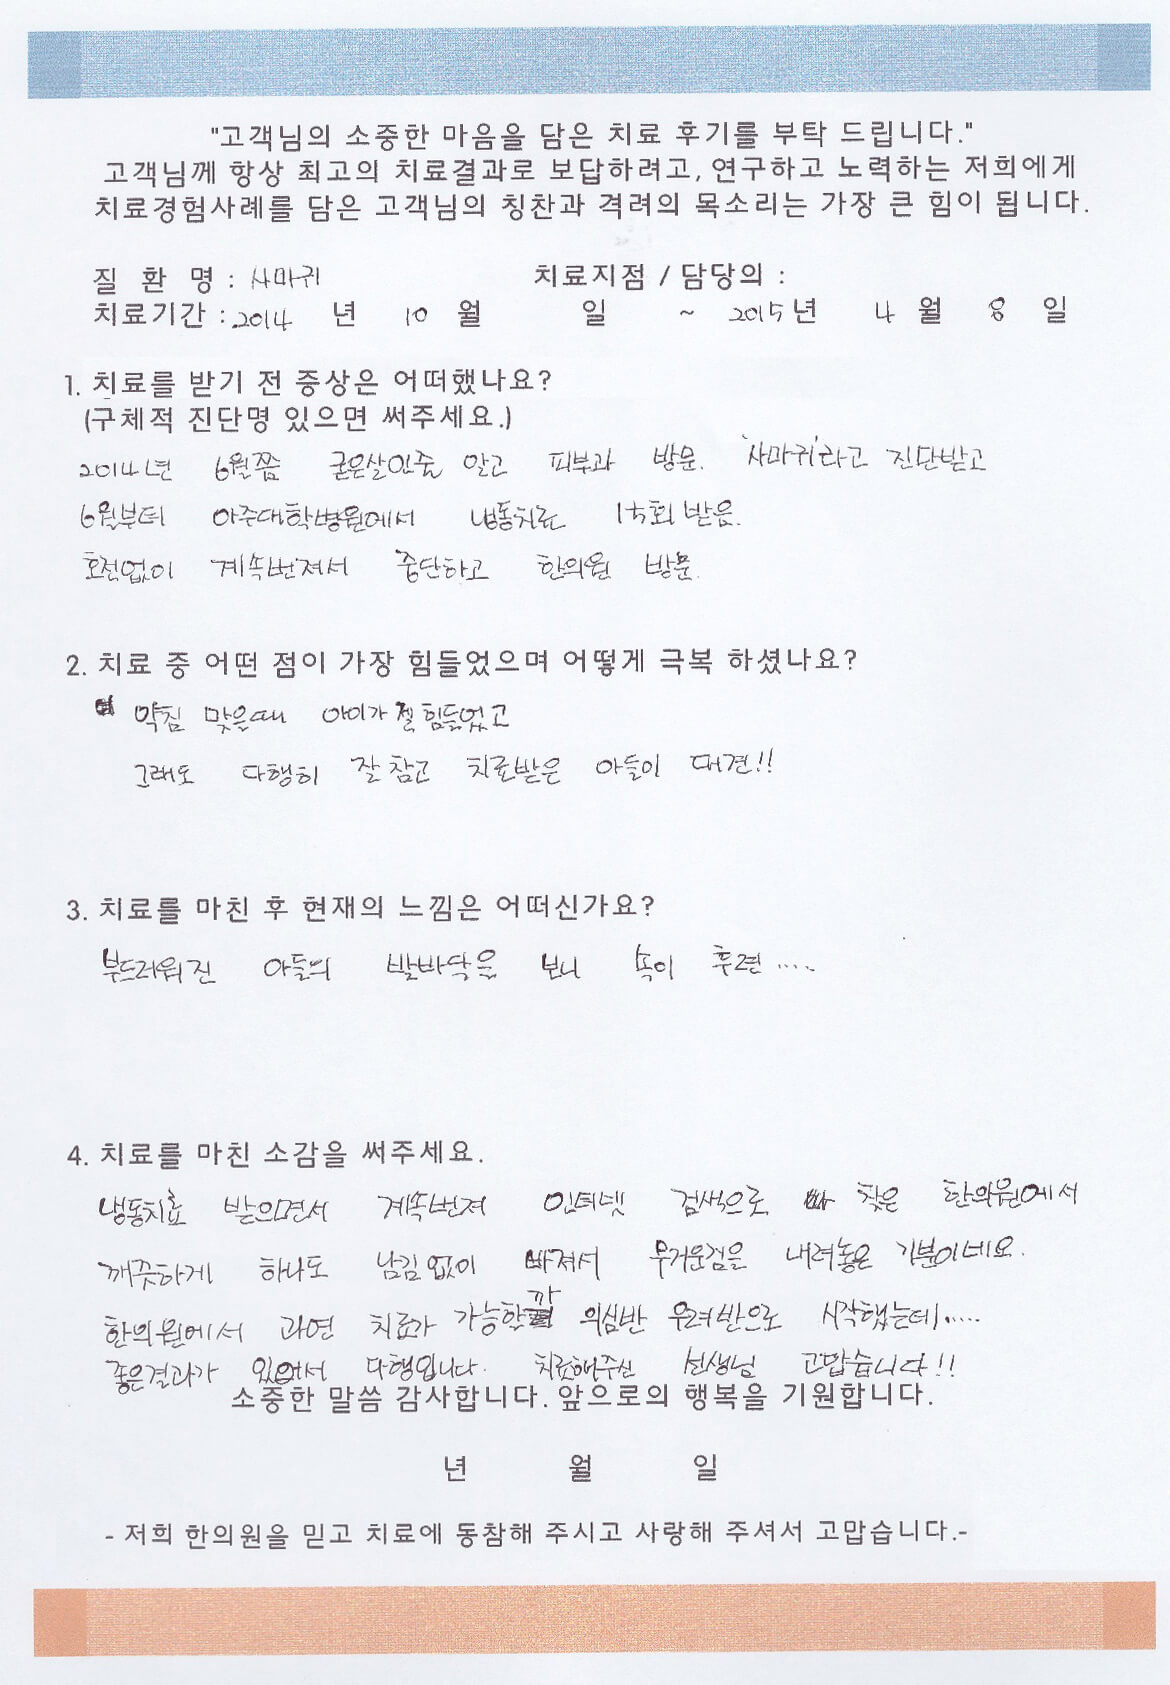 "고객님의 소중한 마음을 담은 치료 후기를 부탁 드립니다."
고객님께 항상 최고의 치료결과로 보답하려고, 연구하고 노력하는 저희에게
치료경험사례를 담은 고객님의 칭찬과 격려의 목소리는 가장 큰 힘이 됩니다.
질 환 명 : 사마귀 치료지점 / 담당의 :
치료기간 : 2014 년 10 월 일 ~ 2015년 4 월 8 일
1. 치료를 받기 전 증상은 어떠했나요?
(구체적 진단명 있으면 써주세요.)
2014년 6월쯤 굳은살인줄 알고 피부과 방문. '사마귀'라고 진단받고
6월부터 아주대학병원에서 냉동치료 15회 받음.
호전없이 계속번져서 중단하고 한의원 방문.
2. 치료 중 어떤 점이 가장 힘들었으며 어떻게 극복 하셨나요?
약침 맞을때 아이가 젤 힘들었고
그래도 다행히 잘 참고 치료받은 아들이 대견!!
3. 치료를 마친 후 현재의 느낌은 어떠신가요?
부드러워진 아들의 발바닥을 보니 속이 후련....
4. 치료를 마친 소감을 써주세요.
냉동치료 받으면서 계속번져 인터넷 검색으로 찾은 한의원에서
깨끗하게 하나도 남김없이 빠져서 무거운짐을 내려놓은 기분이네요.
한의원에서 과연 치료가 가능할까 의심반 우려반으로 시작했는데.....
좋은결과가 있어서 다행입니다. 치료해주신 선생님 고맙습니다!!
소중한 말씀 감사합니다. 앞으로의 행복을 기원합니다.
년 월 일
- 저희 한의원을 믿고 치료에 동참해 주시고 사랑해 주셔서 고맙습니다.-